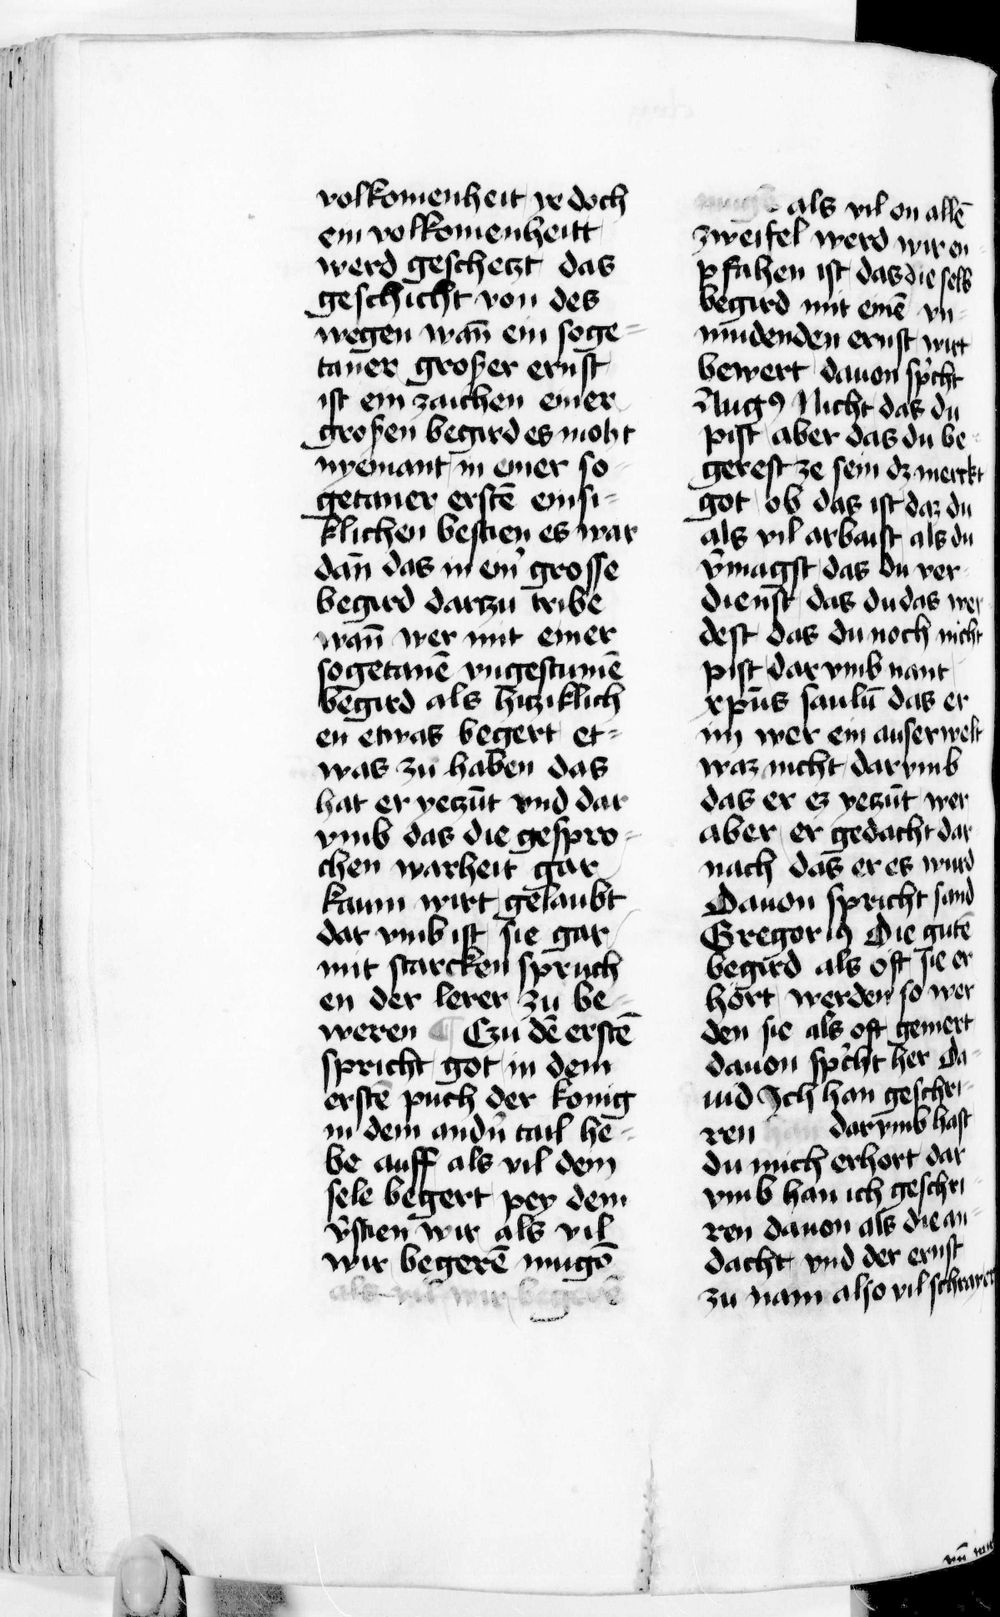 volkomenheit ye doch
ein volkomenheitt
werd geschetzt das
geschicht von des
wegen wan̄ ein soge=
taner groſzer ernst
ist ein zaichen einer
groſzen begird es moht
nyemant in einer so-
getaner erstē einsi=
klichen bestien es war
dan̄ das in ein̓ grosse
begird darzu tribe
wan̄ wer mit einer
sogetanē vngestumē
begird als hiziklich
en etwas begert et=
was zu haben das
hat er yeczūt vnd dar
vmb das die gespro-
chen warheit gar
kaum wirt gelaubt
dar vmb ist sie gar
mit starcken spruch
en der lerer zu be-
weren ¶ Czu dē erstē
spricht got in dem
erstē puch der konig
in dem and̓n tail he-
be auff als vil dem
sele begert pey dem
v̓stien wir als vil
wir begerē mugē
als vil wir begerē
mugē als vil on allē
zweifel werd wir en-
pfahen ist das die selb
begird mit einē vn-
mudenden ernst wirt
bewert dauon sp̓cht
Augꝰ Nicht das du
pist aber das du be-
gerest ze sein dz merckt
got ob das ist daz du
als vil arbaist als du
v̓magst das du ver-
dienst das du das wer
dest das du noch nicht
pist dar vmb nant
xpūs saulū das er
im wer ein auserwelt
waz nicht dar vmb
das er ez yeczūt wer
aber er gedacht dar
nach das er es wurd
Dauon spricht sand
Gregoriꝰ Die gutē
begird als oft sie er
hort werden so wer
den sie als oft gemert
dauon sp̓cht her Da-
uid Ich han geschri-
ren han dar vmb hast
du mich erhort dar
vmb han ich geschri-
ren dauon als die an-
dacht vnd der ernst
zu nam also vil schrarer